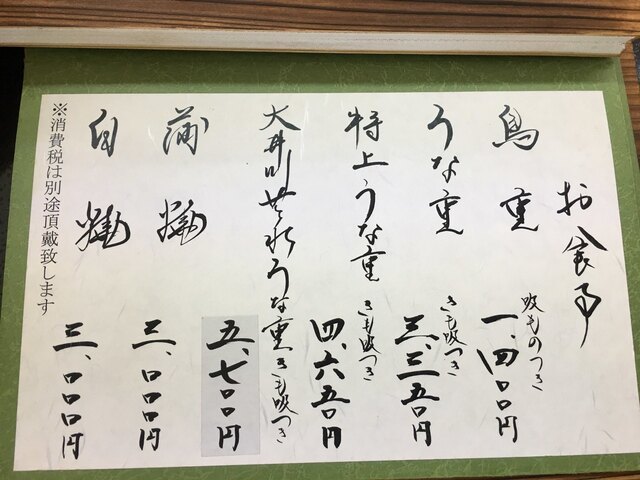 お食事
鳥重 吸ものつき 一、四〇〇円
うな重 きも吸つき 三、三五〇円
特上うな重 きも吸つき 四、六五〇円
大井川共水うな重 きも吸つき 五、七〇〇円
蒲焼 三、〇〇〇円
白焼 三、〇〇〇円
※消費税は別途頂戴致します